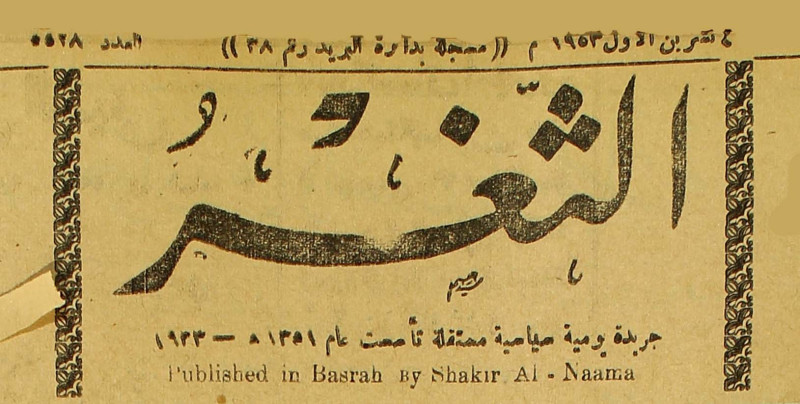 تشرين الاول ١٩٥٣ م ((مسجلة بدائرة البريد رقم ٣٨)) العدد ٥٥٢٨
الثغر
جريدة يومية سياسية مستقلة تأسست عام ١٣٥١ ه — ١٩٣٣
Published in Basrah By Shakir Al - Naama